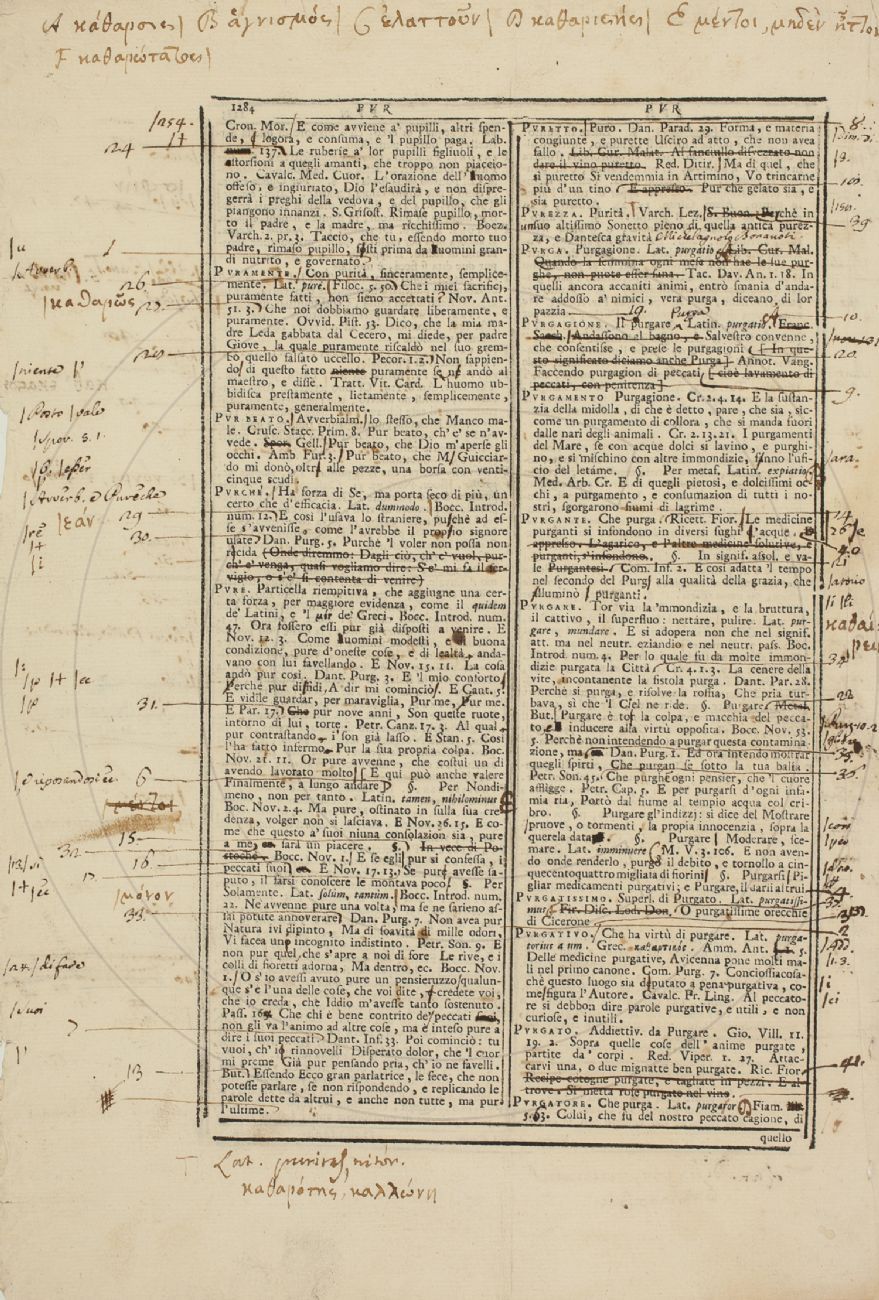 A κάθαρσις| B ἁγνισμός| C ἐλαττοῦν| D καθαριστής| E μέντοι, μηδὲν ἧττον
F καθαριώτατος|
1284 PVR PVR
Cron. Mor. E come avviene a' pupilli, altri spen-
de, logora, e consuma, e 'l pupillo paga. Lab.
137. Le ruberie a' lor pupilli figliuoli, e le
estorsioni a quegli amanti, che troppo non piaccio-
no. Cavalc. Med. Cuor. L'orazione dell'uomo
offeso, e ingiuriato, Dio l'esaudirà, e non dispre-
gerrà i preghi della vedova, e del pupillo, che gli
piangono innanzi. S. Grisost. Rimase pupillo, mor-
to il padre, e la madre, ma ricchissimo. Boez.
Varch. 2. pr. 3. Taccio, che tu, essendo morto tuo
padre, rimaso pupillo, fosti prima da uomini gran-
di nutrito, e governato.
PURAMENTE. Con purità, sinceramente, semplice-
mente. Lat. pure. Filoc. 5. 50. Che i miei sacrificj,
puramente fatti, non sieno accettati? Nov. Ant.
51. 3. Che noi dobbiamo guardare liberamente, e
puramente. Ovvid. Pist. 53. Dico, che la mia ma-
dre Leda gabbata dal Cecero, mi diede, per padre
Giove, la quale puramente riscaldò nel suo grem-
bo quello falsato uccello. Pecor. 1. 2. Non sappien-
do di questo fatto niente puramente se ne andò al
maestro, e disse. Tratt. Vit. Card. L'huomo ub-
bidisca prestamente, lietamente, semplicemente,
puramente, generalmente.
PUR BEATO. Avverbialm. lo stesso, che Manco ma-
le. Crusc. Stacc. Prim. 8. Pur beato, ch'e' se n'av-
vede. Spor. Gell. Pur beato, che Dio m'aperse gli
occhi. Amb. Fur. 3. Pur beato, che M. Guicciar-
do mi donò, oltre alle pezze, una borsa con venti-
cinque scudi.
PURCHÈ. Ha forza di Se, ma porta seco di più, un
certo che d'efficacia. Lat. dummodo. Bocc. Introd.
num. 12. E così l'usava lo straniere, purchè ad es-
se s'avvenisse, come l'avrebbe il proprio signore
usate. Dan. Purg. 5. Purchè 'l voler non possa non
recida (Onde diremmo: Dagli ciò, ch'e' vuol, pur-
ch'e' venga, quasi vogliamo dire: S'e' mi fa il ser-
vigio, o s'e' si contenta di venire)
PURE. Particella riempitiva, che aggiugne una cer-
ta forza, per maggiore evidenza, come il quidem
de' Latini, e 'l μέν de' Greci. Bocc. Introd. num.
47. Ora fossero essi pur già disposti a venire. E
Nov. 12. 3. Come uomini modesti, e di buona
condizione, pure d'oneste cose, e di lealtà, anda-
vano con lui favellando. E Nov. 15. 11. La cosa
andò pur così. Dant. Purg. 3. E 'l mio conforto
Perchè pur diffidi, A dir mi cominciò. E Cant. 5.
E vidile guardar, per maraviglia, Pur me, Pur me.
E Par. 17. Che pur nove anni, Son queste ruote,
intorno di lui, torte. Petr. Canz. 17. 3. Al qual
pur contrastando, i' son già lasso. E Stan. 5. Così
l'ha fatto infermo, Pur la sua propria colpa. Boc.
Nov. 21. 11. Or pure avvenne, che costui un dì
avendo lavorato molto. E qui può anche valere
Finalmente, a lungo andare. §. Per Nondi-
meno, non per tanto. Latin. tamen, nihilominus
Boc. Nov. 2. 4. Ma pure, ostinato in sulla sua cre-
denza, volger non si lasciava. E Nov. 26. 15. E co-
me che questo a' suoi niuna consolazion sia, pure
a me, sarà un piacere. §. In vece di Po-
stochè. Bocc. Nov. 1. E se egli pur si confessa, i
peccati suoi. E Nov. 17. 13. Se pure avesse sa-
puto, il farsi conoscere le montava poco. §. Per
Solamente. Lat. solum, tantum. Bocc. Introd. num.
22. Ne avvenne pure una volta, ma se ne sarieno as-
sai potute annoverare. Dan. Purg. 7. Non avea pur
Natura ivi dipinto, Ma di soavità di mille odori,
Vi facea uno incognito indistinto. Petr. Son. 9. E
non pur quel, che s'apre a noi di fore Le rive, e i
colli di fioretti adorna, Ma dentro, ec. Bocc. Nov.
1. O s'io avessi avuto pure un pensieruzzo qualun-
que s'è l'una delle cose, che voi dite, credete voi,
che io creda, che Iddio m'avesse tanto sostenuto.
Pass. 169. Che chi è bene contrito de' peccati suoi,
non gli va l'animo ad altre cose, ma è inteso pure a
dire i suoi peccati. Dant. Inf. 33. Poi cominciò: tu
vuoi, ch'io rinnovelli Disperato dolor, che 'l cuor
mi preme Già pur pensando pria, ch'io ne favelli.
But. Essendo Ecco gran parlatrice, le fece, che non
potesse parlare, se non rispondendo, e replicando le
parole dette da altrui, e anche non tutte, ma pur
l'ultime.
PURETTO. Puro. Dan. Parad. 29. Forma, e materia
congiunte, e purette Usciro ad atto, che non avea
fallo. Lib. Cur. Malat. Al fanciullo disvezzato non
dare il vino puretto. Red. Ditir. Ma di quel, che
sì puretto Si vendemmia in Artimino, Vo trincarne
più d'un tino. E appresso. Pur che gelato sia, e
sia puretto.
PUREZZA. Purità. Varch. Lez. S. Buon. Perchè in
suo altissimo Sonetto pieno di quella antica purez-
za, e Dantesca gravità
PURGA. Purgagione. Lat. purgatio. Lib. Cur. Mal.
Quando la femmina ogni mese non hae le sue pur-
ghe, non puote esser sana. Tac. Dav. An. 1. 18. In
quelli ancora accaniti animi, entrò smania d'anda-
re addosso a' nimici, vera purga, diceano, di lor
pazzia. 19. Purga
PURGAGIONE. Il purgare. Latin. purgatio. Franc.
Sacch. Andassono al bagno, e Salvestro convenne,
che consentisse, e prese le purgagioni. (In que-
sto significato diciamo anche Purga) Annot. Vang.
Faccendo purgagion di peccati (cioè lavamento di
peccati, con penitenza)
PURGAMENTO. Purgagione. Cr. 2. 4. 14. E la sustan-
zia della midolla, di che è detto, pare, che sia, sic-
come un purgamento di collora, che si manda fuori
dalle nari degli animali. Cr. 2. 13. 21. I purgamenti
del Mare, se con acque dolci si lavino, e purghi-
no, e si mischino con altre immondizie, fanno l'ufi-
cio del letáme. §. Per metaf. Latin. expiatio.
Med. Arb. Cr. E di quegli pietosi, e dolcissimi oc-
chi, a purgamento, e consumazion di tutti i no-
stri, sgorgarono fiumi di lagrime.
PURGANTE. Che purga. Ricett. Fior. Le medicine
purganti si infondono in diversi sughi d'acque. E
appresso. L'agarico, e l'altre medicine solutive, e
purganti, s'infondono. §. In signif. assol. e va-
le Purgantesi. Com. Inf. 2. E così adatta 'l tempo
nel secondo del Purg. alla qualità della grazia, che
illuminò i purganti.
PURGARE. Tor via la 'mmondizia, e la bruttura,
il cattivo, il superfluo: nettare, pulire. Lat. pur-
gare, mundare. E si adopera non che nel signif.
att. ma nel neutr. eziandio e nel neutr. pass. Boc.
Introd. num. 4. Per lo quale fu da molte immon-
dizie purgata la Città. Cr. 4. 1. 3. La cenere della
vite, incontanente la fistola purga. Dant. Par. 28.
Perchè si purga, e risolve la roffia, Che pria tur-
bava, sì che 'l Ciel ne ride. §. Purgare Metaf.
But. Purgare è tor la colpa, e macchia del pecca-
to, inducere alla virtù opposita. Bocc. Nov. 53.
5. Perchè non intendendo a purgar questa contamina-
zione, ma Dan. Purg. 1. Ed ora intendo mostrar
quegli spirti, Che purgan se sotto la tua balìa.
Petr. Son. 45. Che purghe ogni pensier, che 'l cuore
affligge. Petr. Cap. 5. E per purgarsi d'ogni infa-
mia ria, Portò dal fiume al tempio acqua col cri-
bro. §. Purgare gl'indizzj: si dice del Mostrare
pruove, o tormenti, la propia innocenzia, sopra la
querela data. §. Purgare. Moderare, sce-
mare. Lat. imminuere. M. V. 3. 106. E non aven-
do onde renderlo, purgò il debito, e tornollo a cin-
quecentoquattro migliata di fiorini. §. Purgarsi. Pi-
gliar medicamenti purgativi; e Purgare, il darli altrui.
PURGATISSIMO. Superl. di Purgato. Lat. purgatissi-
mus. Fir. Disc. Lod. Don. O purgatissime orecchie
di Cicerone
PURGATIVO. Che ha virtù di purgare. Lat. purga-
torius a um. Grec. καθαρτικός. Amm. Ant. 5.
Delle medicine purgative, Avicenna pone molti ma-
li nel primo canone. Com. Purg. 7. Conciossiacosa-
chè questo luogo sia deputato a pena purgativa, co-
me figura l'Autore. Cavalc. Fr. Ling. Al peccato-
re si debbon dire parole purgative, e utili, e non
curiose, e inutili.
PURGATO. Addiettiv. da Purgare. Gio. Vill. 11.
19. 2. Sopra quelle cose dell'anime purgate,
partite da' corpi. Red. Viper. 1. 27. Attac-
carvi una, o due mignatte ben purgate. Ric. Fior.
Recipe cotogne purgate, e tagliate in pezzi. E al-
trove. Si metta rose purgate nel vino.
PURGATORE. Che purga. Lat. purgator. Fiam.
5. 63. Colui, che fu del nostro peccato cagione, di
quello
1254.
24
26
καθαρῶς
27
|niente|
29
ἐάν
30.
31
6
15
32
16
μόνον
33
|di fare
13
8.
39
10.
20.
9.
40
Lat. puritas, nitor.
καθαρότης, καλλώνη